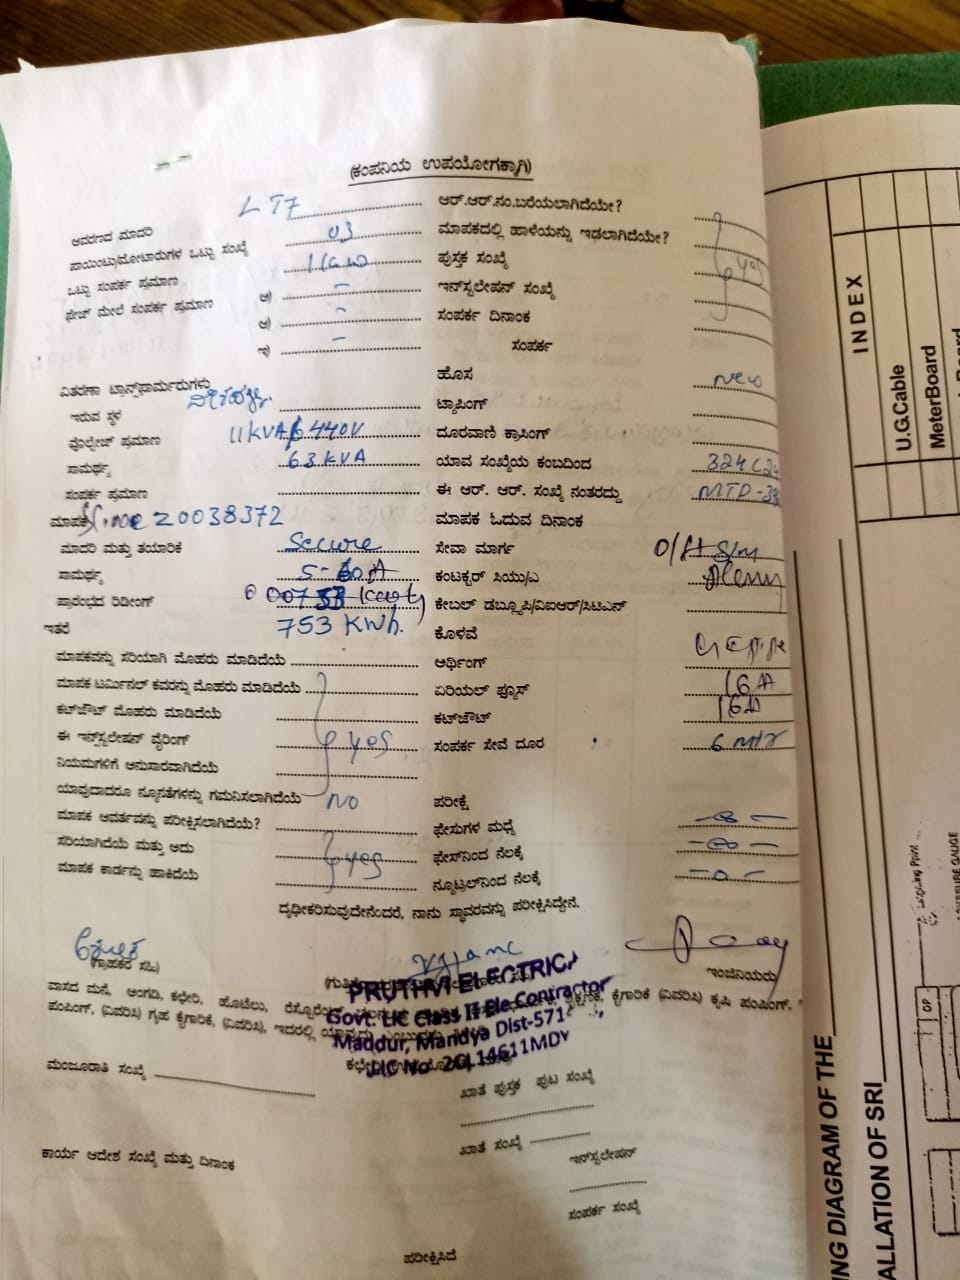 (ಕಂಪನಿಯ ಉಪಯೋಗಕ್ಕಾಗಿ)
ಆವರಣದ ಮಾದರಿ LT7
ಪಾಯಿಂಟು/ಮೋಟಾರುಗಳ ಒಟ್ಟು ಸಂಖ್ಯೆ 03
ಒಟ್ಟು ಸಂಪರ್ಕ ಪ್ರಮಾಣ 1KW
ಫೇಜ್ ಮೇಲೆ ಸಂಪರ್ಕ ಪ್ರಮಾಣ ಅ) –
ಆ) –
ಇ) –
ವಿತರಣಾ ಟ್ರಾನ್ಸ್‌ಫಾರ್ಮರುಗಳು
ಇರುವ ಸ್ಥಳ
ವೊಲ್ಟೇಜ್ ಪ್ರಮಾಣ 11KVA/440V
ಸಾಮರ್ಥ್ಯ 63KVA
ಸಂಪರ್ಕ ಪ್ರಮಾಣ
ಮಾಪಕ Sl.no 20038372
ಮಾದರಿ ಮತ್ತು ತಯಾರಿಕೆ Secure
ಸಾಮರ್ಥ್ಯ 5-60A
ಪ್ರಾರಂಭದ ರಿಡೀಂಗ್
ಇತರೆ 753 KWh.
ಮಾಪಕವನ್ನು ಸರಿಯಾಗಿ ಮೊಹರು ಮಾಡಿದೆಯೆ
ಮಾಪಕ ಟರ್ಮಿನಲ್ ಕವರನ್ನು ಮೊಹರು ಮಾಡಿದೆಯೆ
ಕಟ್‌ಔಟ್ ಮೊಹರು ಮಾಡಿದೆಯೆ
ಈ ಇನ್‌ಸ್ಟಲೇಷನ್ ವೈರಿಂಗ್ yes
ನಿಯಮಗಳಿಗೆ ಅನುಸಾರವಾಗಿದೆಯೆ
ಯಾವುದಾದರೂ ನ್ಯೂನತೆಗಳನ್ನು ಗಮನಿಸಲಾಗಿದೆಯೆ NO
ಮಾಪಕ ಆವರ್ತವನ್ನು ಪರೀಕ್ಷಿಸಲಾಗಿದೆಯೆ?
ಸರಿಯಾಗಿದೆಯೆ ಮತ್ತು ಅದು yes
ಮಾಪಕ ಕಾರ್ಡನ್ನು ಹಾಕಿದೆಯೆ
ಆರ್.ಆರ್.ನಂ.ಬರೆಯಲಾಗಿದೆಯೇ?
ಮಾಪಕದಲ್ಲಿ ಹಾಳೆಯನ್ನು ಇಡಲಾಗಿದೆಯೇ?
ಪುಸ್ತಕ ಸಂಖ್ಯೆ yes
ಇನ್‌ಸ್ಟಲೇಷನ್ ಸಂಖ್ಯೆ
ಸಂಪರ್ಕ ದಿನಾಂಕ
ಸಂಪರ್ಕ
ಹೊಸ New
ಟ್ಯಾಪಿಂಗ್
ದೂರವಾಣಿ ಕ್ರಾಸಿಂಗ್
ಯಾವ ಸಂಖ್ಯೆಯ ಕಂಬದಿಂದ
ಈ ಆರ್. ಆರ್. ಸಂಖ್ಯೆ ನಂತರದ್ದು
ಮಾಪಕ ಓದುವ ದಿನಾಂಕ
ಸೇವಾ ಮಾರ್ಗ O/H S/m
ಕಂಟಕ್ಟರ್ ಸಿಯು/ಎ
ಕೇಬಲ್ ಡಬ್ಲ್ಯೂಪಿ/ವಿಐಆರ್/ಸಿಟಿಎಸ್
ಕೊಳವೆ
ಅರ್ಥಿಂಗ್
ಏರಿಯಲ್ ಫ್ಯೂಸ್ 16A
ಕಟ್‌ಔಟ್ 16A
ಸಂಪರ್ಕ ಸೇವೆ ದೂರ 6 mtr
ಪರೀಕ್ಷೆ
ಫೇಸುಗಳ ಮಧ್ಯೆ
ಫೇಸ್‌ನಿಂದ ನೆಲಕ್ಕೆ
ನ್ಯೂಟ್ರಲ್‌ನಿಂದ ನೆಲಕ್ಕೆ
ದೃಢೀಕರಿಸುವುದೇನೆಂದರೆ, ನಾನು ಸ್ಥಾವರವನ್ನು ಪರೀಕ್ಷಿಸಿದ್ದೇನೆ.
(ಗ್ರಾಹಕರ ಸಹಿ)
ಇಂಜಿನಿಯರು
ವಾಸದ ಮನೆ, ಅಂಗಡಿ, ಕಛೇರಿ, ಹೊಟೆಲು,
ಕೈಗಾರಿಕೆ (ವಿವರಿಸಿ) ಕೃಷಿ ಪಂಪಿಂಗ್,
ಪಂಪಿಂಗ್, (ವಿವರಿಸಿ) ಗೃಹ ಕೈಗಾರಿಕೆ, (ವಿವರಿಸಿ), ಇದರಲ್ಲಿ
PRUTHVI ELECTRICA
Govt. LIC Class II Ele Contractor
Maddur, Mandya Dist-571
LIC No 2CL14611MDY
ಮಂಜೂರಾತಿ ಸಂಖ್ಯೆ
ಖಾತೆ ಪುಸ್ತಕ ಪುಟ ಸಂಖ್ಯೆ
ಖಾತೆ ಸಂಖ್ಯೆ
ಕಾರ್ಯ ಆದೇಶ ಸಂಖ್ಯೆ ಮತ್ತು ದಿನಾಂಕ
ಇನ್‌ಸ್ಟಲೇಷನ್
ಸಂಪರ್ಕ ಸಂಖ್ಯೆ
ಪರೀಕ್ಷಿಸಿದೆ
INDEX
U.G.Cable
MeterBoard
NG DIAGRAM OF THE
ALLATION OF SRI